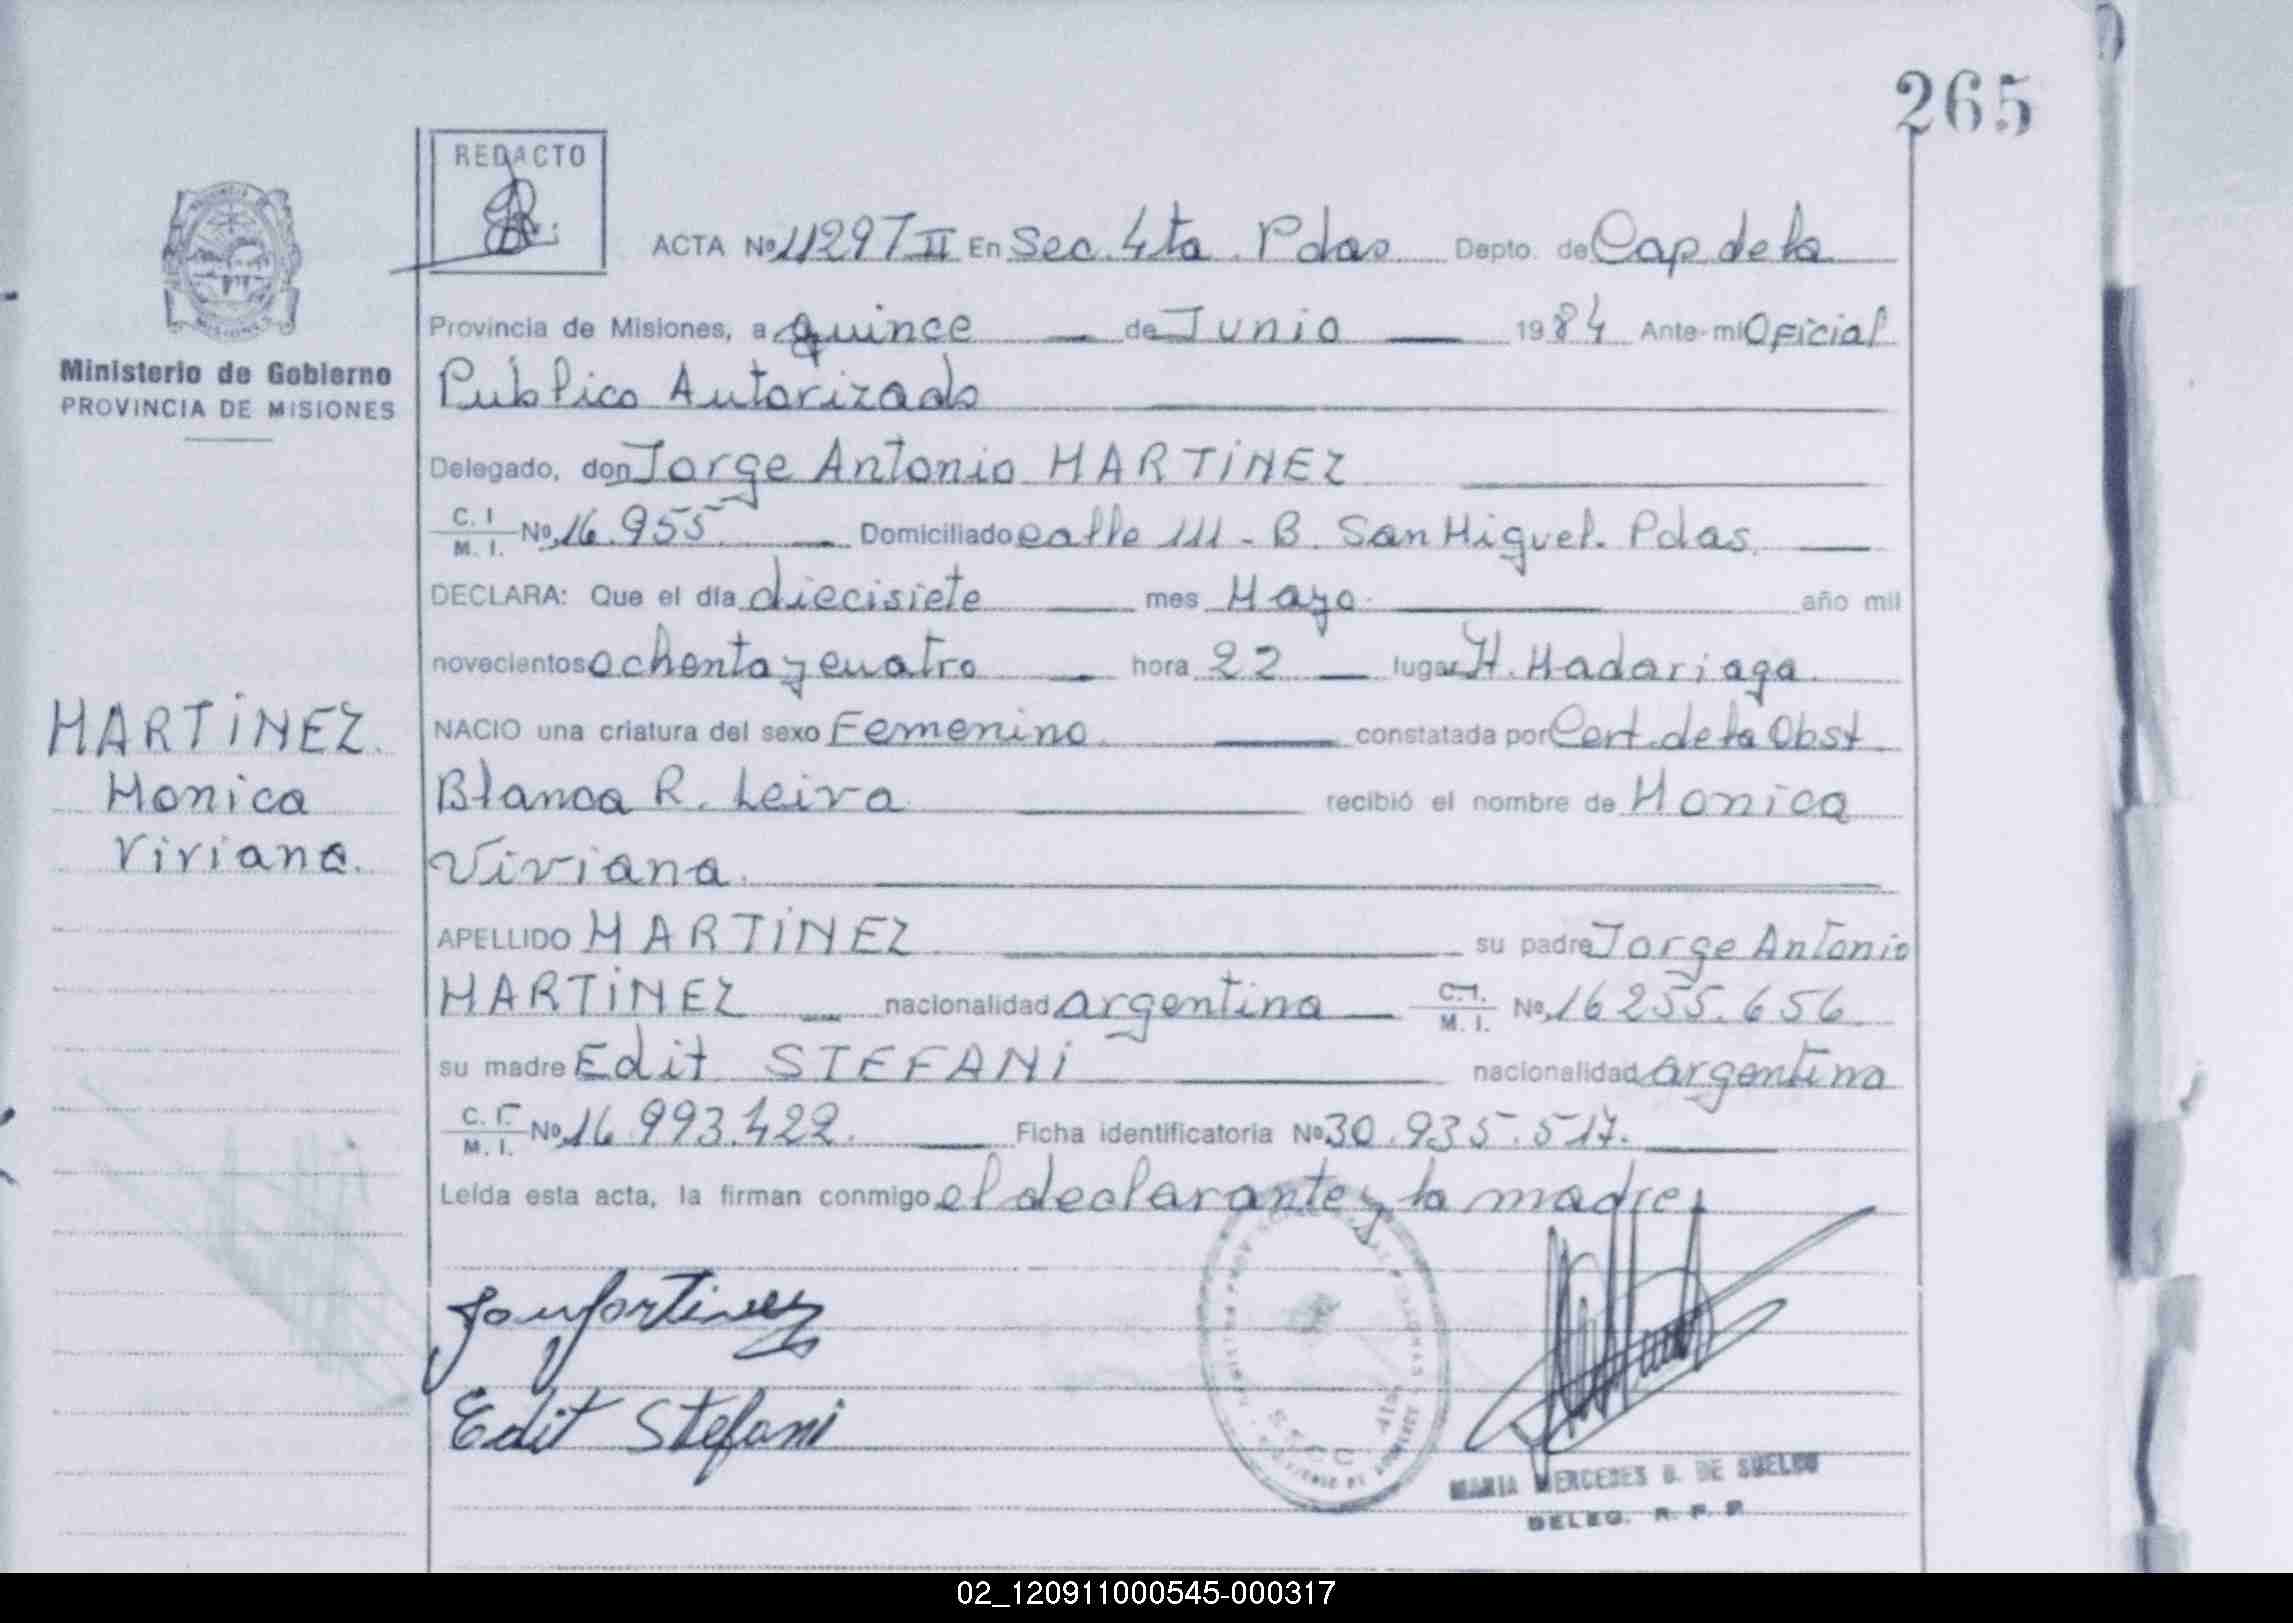 265
REDACTO
ACTA Nº 11297 II En Sec. 4ta. Pdas Depto. de Cap. de la
Provincia de Misiones, a quince de Junio 1984 Ante-mi Oficial
Ministerio de Gobierno
PROVINCIA DE MISIONES
Publico Autorizado
Delegado, don Jorge Antonio MARTINEZ
C. I
M. I. Nº 16.955 Domiciliado calle 111 - B. San Miguel. Pdas.
DECLARA: Que el día diecisiete mes Mayo año mil
novecientos ochenta y cuatro hora 22 lugar H. Madariaga
NACIO una criatura del sexo Femenino constatada por Cert. de la Obst
Blanca R. Leiva recibió el nombre de Monica
Viviana.
MARTINEZ.
Monica
Viviana.
APELLIDO MARTINEZ su padre Jorge Antonio
MARTINEZ nacionalidad argentina C.I.
M. I. Nº 16255.656
su madre Edit STEFANI nacionalidad argentina
C. I.
M. I. Nº 16.993.422. Ficha identificatoria Nº 30.935.517.
Leída esta acta, la firman conmigo el declarante y la madre
Edit Stefani
MARIA MERCEDES B. DE
DELEG. R. P. P
02_120911000545-000317